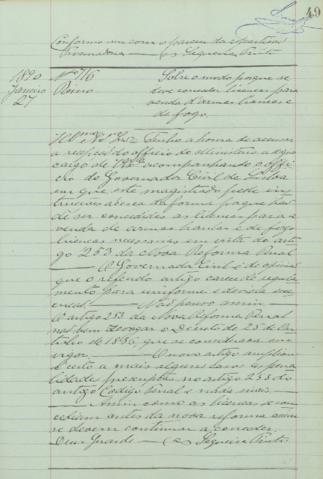 49
Conforme-me com o parecer da repartição
Procuradora — (a) Sequeira Pinto
1890
Janeiro
27
Nº 716
Reino
Sobre o modo porque se
deve conceder licença para
venda d'armas brancas e
de fogo.
Illmo e Exmo Snr. Tenho a honra de accusar
a recepção do officio do Ministerio a digno
cargo de V. Exª acompanhando o offi-
cio do Governador Civil de Lisboa
em que este magistrado pede ins-
trucções acerca da forma porque hão
de ser concedidas as licenças para a
venda de armas brancas e de fogo
licenças necessarias em vista do arti-
go 253 da Nova Reforma Penal
O Governador Civil é de opinião
que o referido artigo carece de regula-
mento para uniforme e devida exe-
cução. — Não penso assim
O artigo 253 da Nova Reforma Penal
não bem derogar o Decreto de 25 de
de 1836, que se considerava em
vigor. — O novo artigo ampliou
é certo a mais alguns casos as pena-
lidades preceptadas no artigo 253 do
antigo Codigo Penal e nada mais.
Assim como as licenças se con-
cediam antes da nova reforma assim
se devem continuar a conceder.
Deus Guarde — (a) Sequeira Pinto.